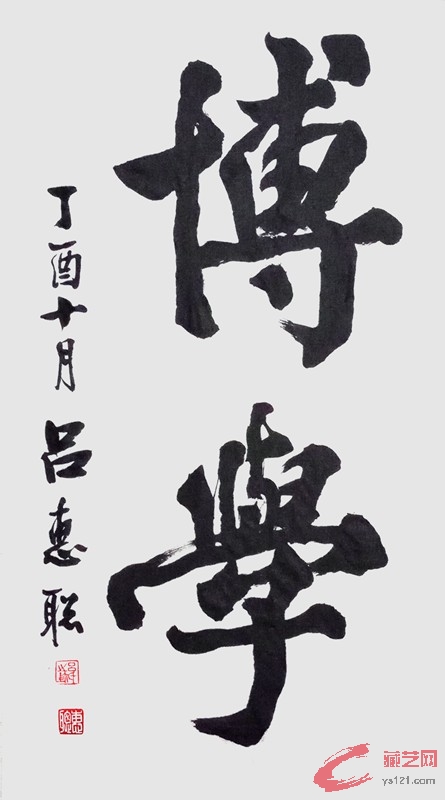 博學
丁酉十月 吕惠聪
藏艺网
ys121.com